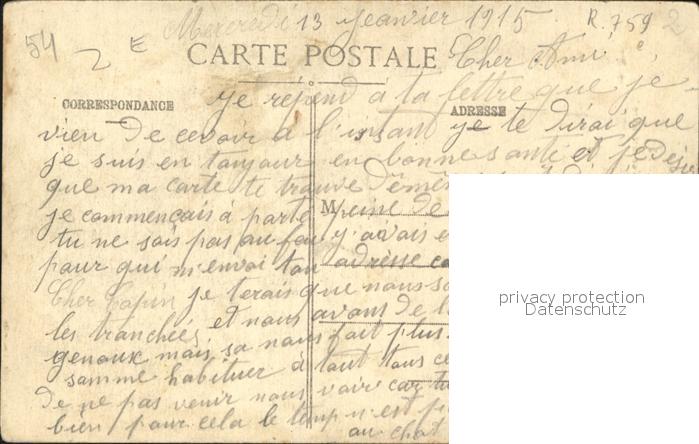 Mercredi 13 Jeanvier 1915 R.759 2
54 2 E
CARTE POSTALE Cher Ami
CORRESPONDANCE ADRESSE
je répond a ta lettre que je
vien de cevoir a l'instant je te dirai que
je suis en toujour en bonne santé et je desir
que ma carte te trouve
je commençais à M peine de
tu ne sais pas au j'avais
pour qui m'envoi ton adresse
Cher Copin je terais que nous
les tranchées et nous avons de l
genoux mais sa nous fait plus
somme habituer à tout tous ce
De ne pas venir nous voir car tu
bien pour cela le temp n'est
au chat
privacy protection
Datenschutz